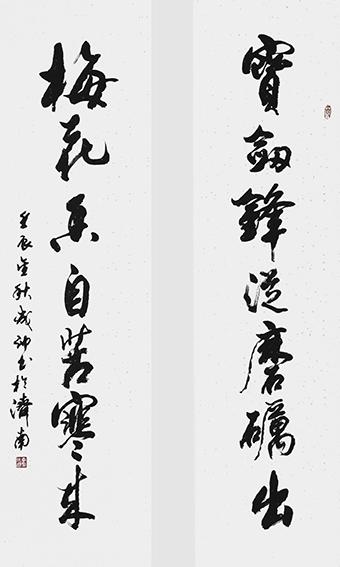 寶劍鋒從磨礪出
梅花香自苦寒來
壬辰金秋成坤書於濟南